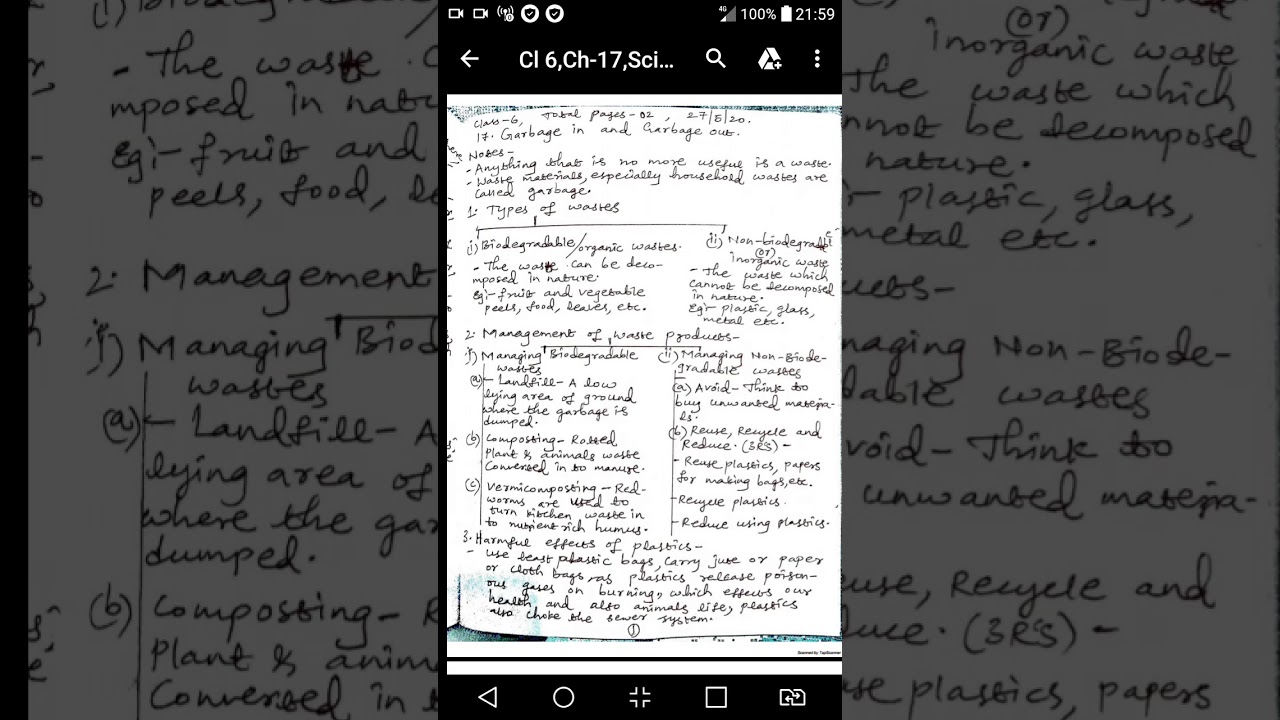 4G 100% 21:59
Cl 6,Ch-17,Sci...
Class-6, Total Pages-02, 27/5/20.
17. Garbage in and Garbage out.
Notes-
- Anything that is no more useful is a waste.
- Waste materials, especially household wastes are
called garbage.
1. Types of wastes
i) Biodegradable/organic wastes.
- The waste can be deco-
mposed in nature.
Eg:- fruit and vegetable
peels, food, leaves, etc.
(ii) Non-biodegrad
(or)
inorganic waste
- The waste which
cannot be decomposed
in nature.
Eg:- plastic, glass,
metal etc.
2. Management of waste products-
i) Managing Biodegradable
wastes
(a) - Landfill- A low
lying area of ground
where the garbage is
dumped.
(b) Composting- Rotted
Plant & animals waste
Converted in to manure.
(c) Vermicomposting - Red-
worms are used to
turn kitchen waste in
to nutrient rich humus.
(ii) Managing Non-Biode-
gradable wastes
(a) Avoid- Think to
buy unwanted materia-
ls.
(b) Reuse, Recycle and
Reduce. (3RS) -
- Reuse plastics, papers
for making bags, etc.
- Recycle plastics.
- Reduce using plastics.
3. Harmful effects of plastics-
- use least plastic bags, carry jute or paper
or cloth bags as plastics release poison-
ous gases on burning, which effects our
health and also animals life, plastics
also choke the sewer system.
1
Scanned by TapScanner